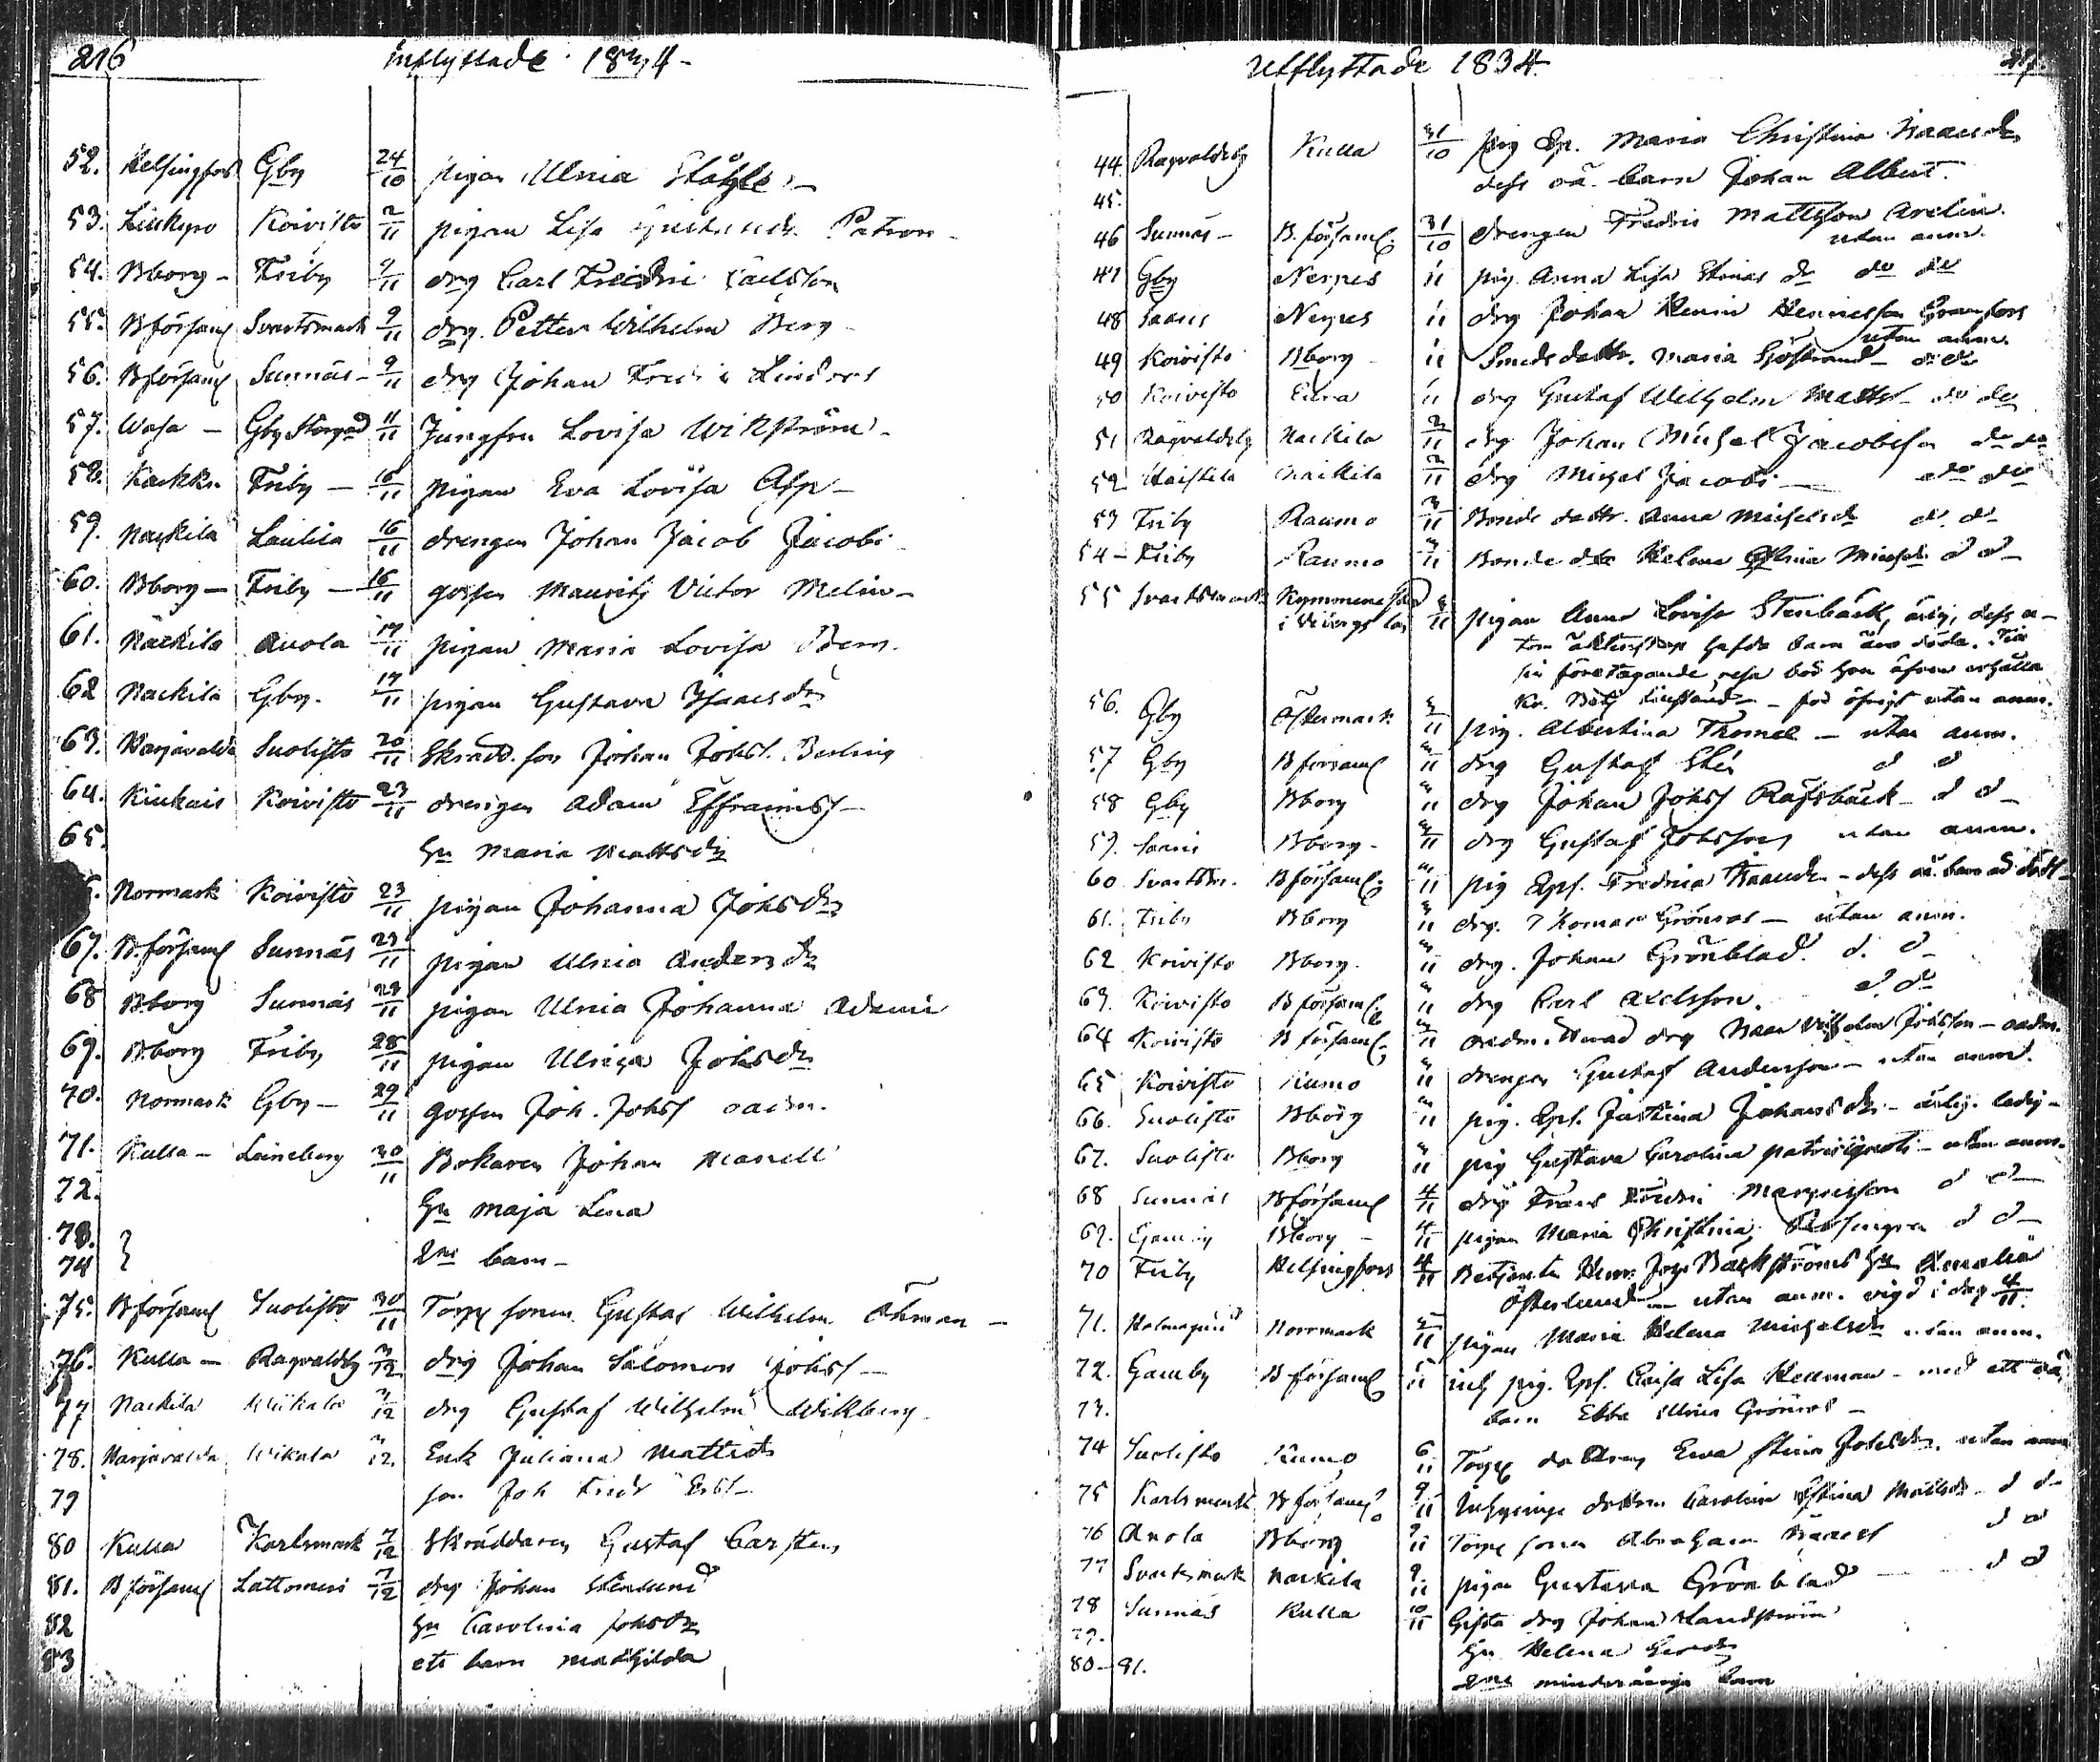 216
Inflyttade 1834 -
52. Helsingfors Gby 24/10 pigan Ulrica Ståhle -
53. Kiukais Koivisto 2/11 pigan Lisa Patron -
54. Bborg - Friby 9/11 drg Carl Fredric Carlsson
55. Bförsaml Svartsmark 9/11 drg. Petter Wilhelm Berg -
56. Bförsaml Sunnäs - 9/11 drg Johan Fredric Lindroos
57. Wasa - Gby Storgård 11/11 Jungfru Lovisa Wikström -
58. Kackku Friby - 16/11 pigan Eva Lovisa Asp -
59. Nackila Laulila 16/11 drengen Johan Jacob Jacobs
60. Bborg - Friby - 16/11 gossen Mauritz Victor Melin -
61. Nackila Anola 17/11 pigan Maria Lovisa Berg.
62 Nackila Gby. 17/11 pigan Gustava Isacsdr
63. Harjavalda Suolisto 20/11 Skrädd. son Johan Johss. Berling
64. Kiukais Koivisto 23/11 drengen Adam Effraimss -
65. Hu Maria Mattsdr
Norrmark Koivisto 23/11 pigan Johanna Johsdr
67. B.församl Sunnäs 23/11 pigan Ulrica Andersdr
68 Bborg Sunnäs 28/11 pigan Ulrica Johanna Adami
69. Bborg Friby 28/11 pigan Ulrica Johsdr
70. Norrmark Gby - 29/11 gossen Joh. Johss oadm.
71. Kulla - Leineberg 30/11 Bokaren Johan Manell
72. Hu Maja Lena
73.
74 } 2ne barn -
75. Bförsaml Suolisto 30/11 Torp sonen Gustaf Wilhelm Öhman -
76. Kulla - Ragvaldsby 3/12 drg Johan Salomon Johss -
77 Nackila Wiikala 3/12 drg Gustaf Wilhelm Wikberg
78. Harjavalda Wikala 3/12. Enk Juliana Mattsdr
79 son Joh Fredr
80 Kulla Karlsmark 7/12 Skräddaren Gustaf Carsten
81. Bförsaml Lattomeri 7/12 drg Johan Stenlund
82 Hu Carolina Johsdr
83 ett barn Mathilda
Utflyttade 1834.
217.
44. Ragvaldsby Kulla 31/10 pig Maria Christina Isaacsdr
45. dess oä. barn Johan Albert.
46 Sunnäs - B.församl. 31/10 drengen Fredric Mattsson Arelin.
utan anm.
47 Gby Nerpes 11 pig. Anna Lisa do do
48 Saaris Nerpes 11 drg Johan Henric Henricsson Granfors
utan anm.
49 Koivisto Bborg 11 Smeds dottr. Maria Sjöstrand - do do
50 Koivisto Eura 11 drg Gustaf Wilhelm Mattss - do do
51 Ragvaldsby Nackila 3/11 drg Johan Michel Jacobsson do do
52 Haistila Nackila 3/11 drg Michel Jacobs - do do
53 Friby Raumo 3/11 Bonde dottr. Anna Michelsdr do do
54 - Friby Raumo 3/11 Bonde dtr Helena Stina Michelsdr d d -
55 Svartsmark Kymmene
i Viborgs län 3/11 pigan Anna Lovisa Stenbäck, ärlig, dess u-
tom äktenskap hafde barn äro döda. För
sin företagande resa bör hon äfven erhålla
- för öfrigt utan anm.
56. Gby Östermark 3/11 pig. Albertina Thomee - utan anm.
57 Gby Bförsaml 3/11 drg Gustaf Sten d d
58 Gby Bborg 3/11 drg Johan Johss Räfsbäck - d d -
59. Saaris Bborg - 3/11 drg Gustaf Johsson utan anm.
60 Svartsm. Bförsaml. 3/11 pig Fredrica Isaacsdr - dess oä. barn är dödt -
61. Friby Bborg 3/11 drg. Thomas Grönroos - utan anm.
62 Koivisto Bborg. 3/11 drg. Johan Grönblad. d. d -
63. Koivisto Bförsaml 3/11 drg Carl Axelsson. d. d -
64 Koivisto Bförsaml. 3/11 drg Isaac Wilhelm Johsson - oadm.
65 Koivisto Kumo 3/11 drengen Gustaf Andersson - utan anm.
66. Suolisto Bborg 3/11 pig. Justina Johansdr - ärlig. ledig -
67. Suolisto Bborg 3/11 pig Gustava Carolina - utan anm.
68 Sunnäs Bförsaml 4/11 drg Frans Fredric d d -
69. Gamby Bborg - 4/11 pigan Maria Christina d d -
70 Friby Helsingfors 4/11 Betjenten Henr. Joh. Bäckströms Hu Amalia
Österlund - utan anm. vigd i dag 4/11.
71. Norrmark 5/11 pigan Maria Helena Michelsdr utan anm.
72. Gamby Bförsaml 5/11 pig. Caisa Lisa Hellman - med ett oä
73. barn Ebba Ulrica Grönroos -
74 Suolisto Kumo 6/11 Torp dottren Eva Stina Johsdr. utan anm
75 Karlsmark Bförsaml. 9/11 Inhysinge dottren Carolina Stina Mattsdr - d d -
76 Anola Bborg 9/11 Torp sonen Abraham Isaacss d d
77 Svartsmark Nackila 9/11 pigan Gustava Grönblad - d d
78 Sunnäs Kulla 10/11 Gifta drg Johan Landström
79. Hu Helena
80 - 81. 2ne minderåriga barn